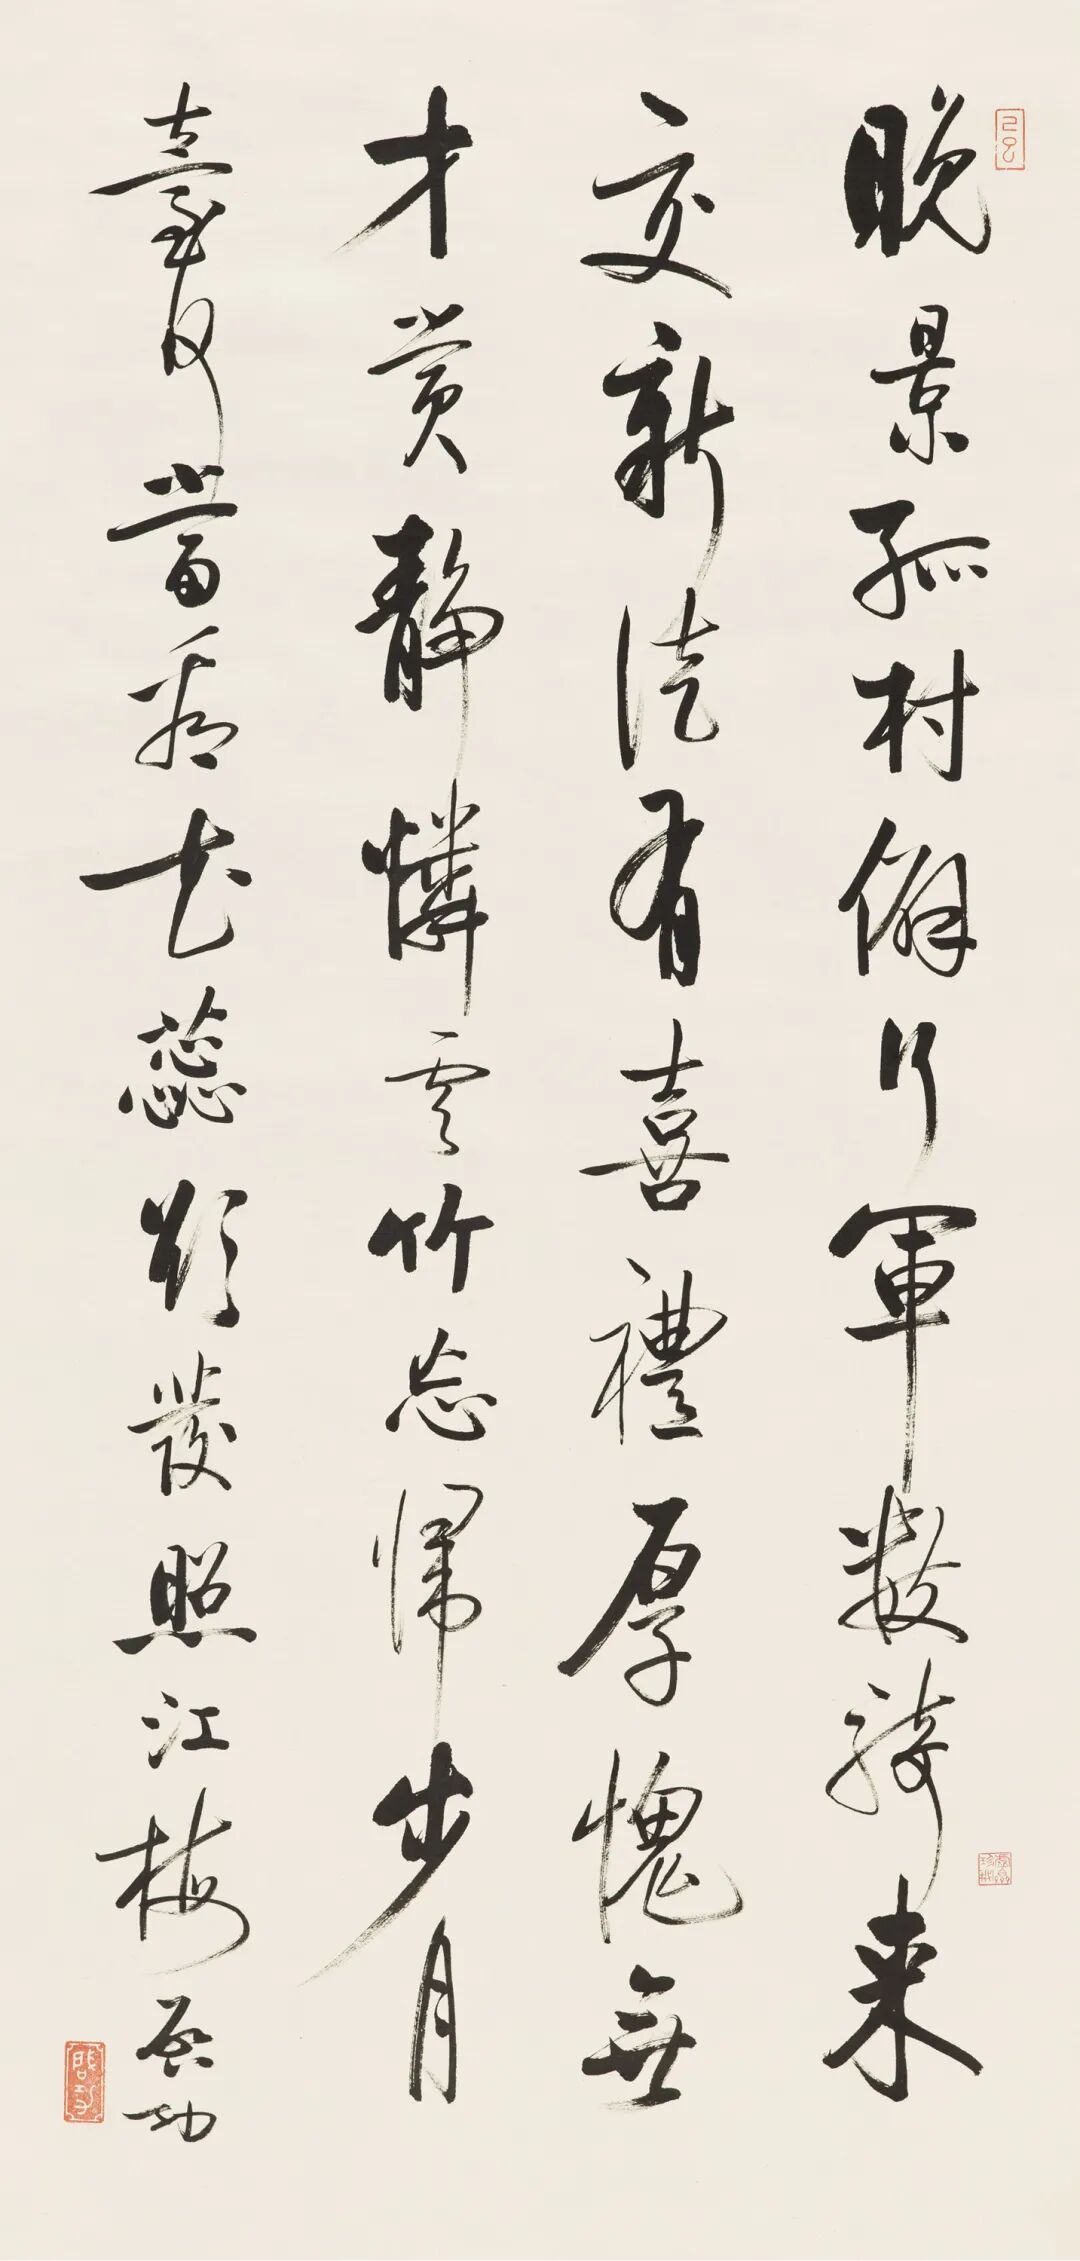 晚景孤村僻行軍數騎来
交新徒有喜禮厚愧無
才賞靜憐雲竹忘歸步月
臺何當看花蕊欲發照江梅 启功
啟功